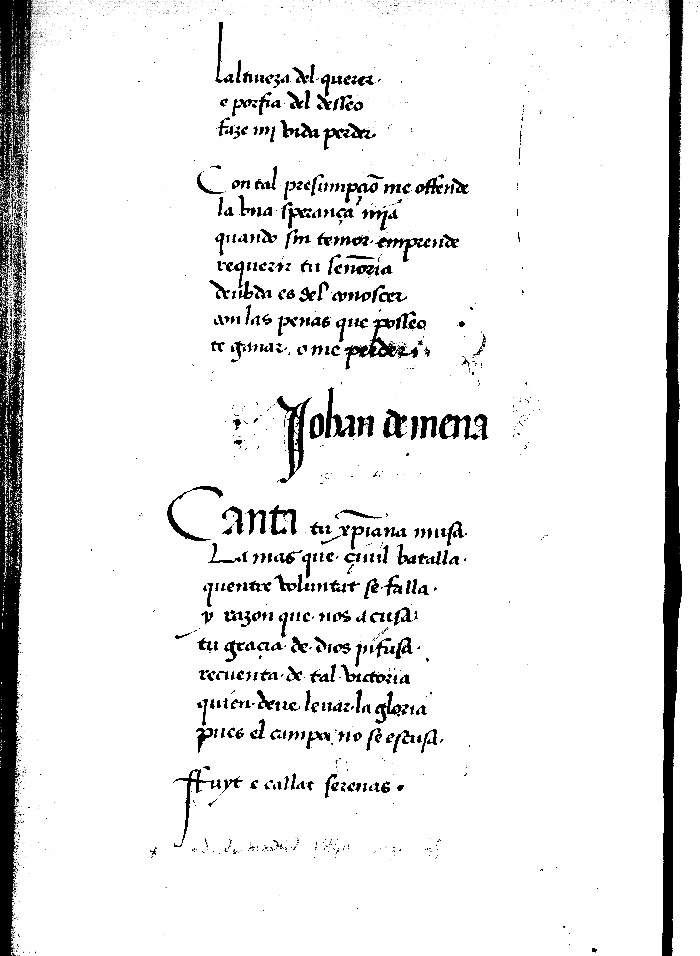 Laltiueza del querer
e porfia del desseo
faze mj vida perder
Con tal presumpçiõ me offende
la bna sperança mja
quando sin temor emprende
requerir tu señoria
deubda es del conoscer
con las penas que posseo
te ganar o me perder
Johan de mena
Canta tu xp̃iana musa
La mas que çiuil batalla
quentre voluntat se falla
y razon que nos acusa
tu graçia de dios jnfusa
recuenta de tal victoria
quien deue leuar la gloria
pues el campo no se escusa
ffuyt e callat serenas